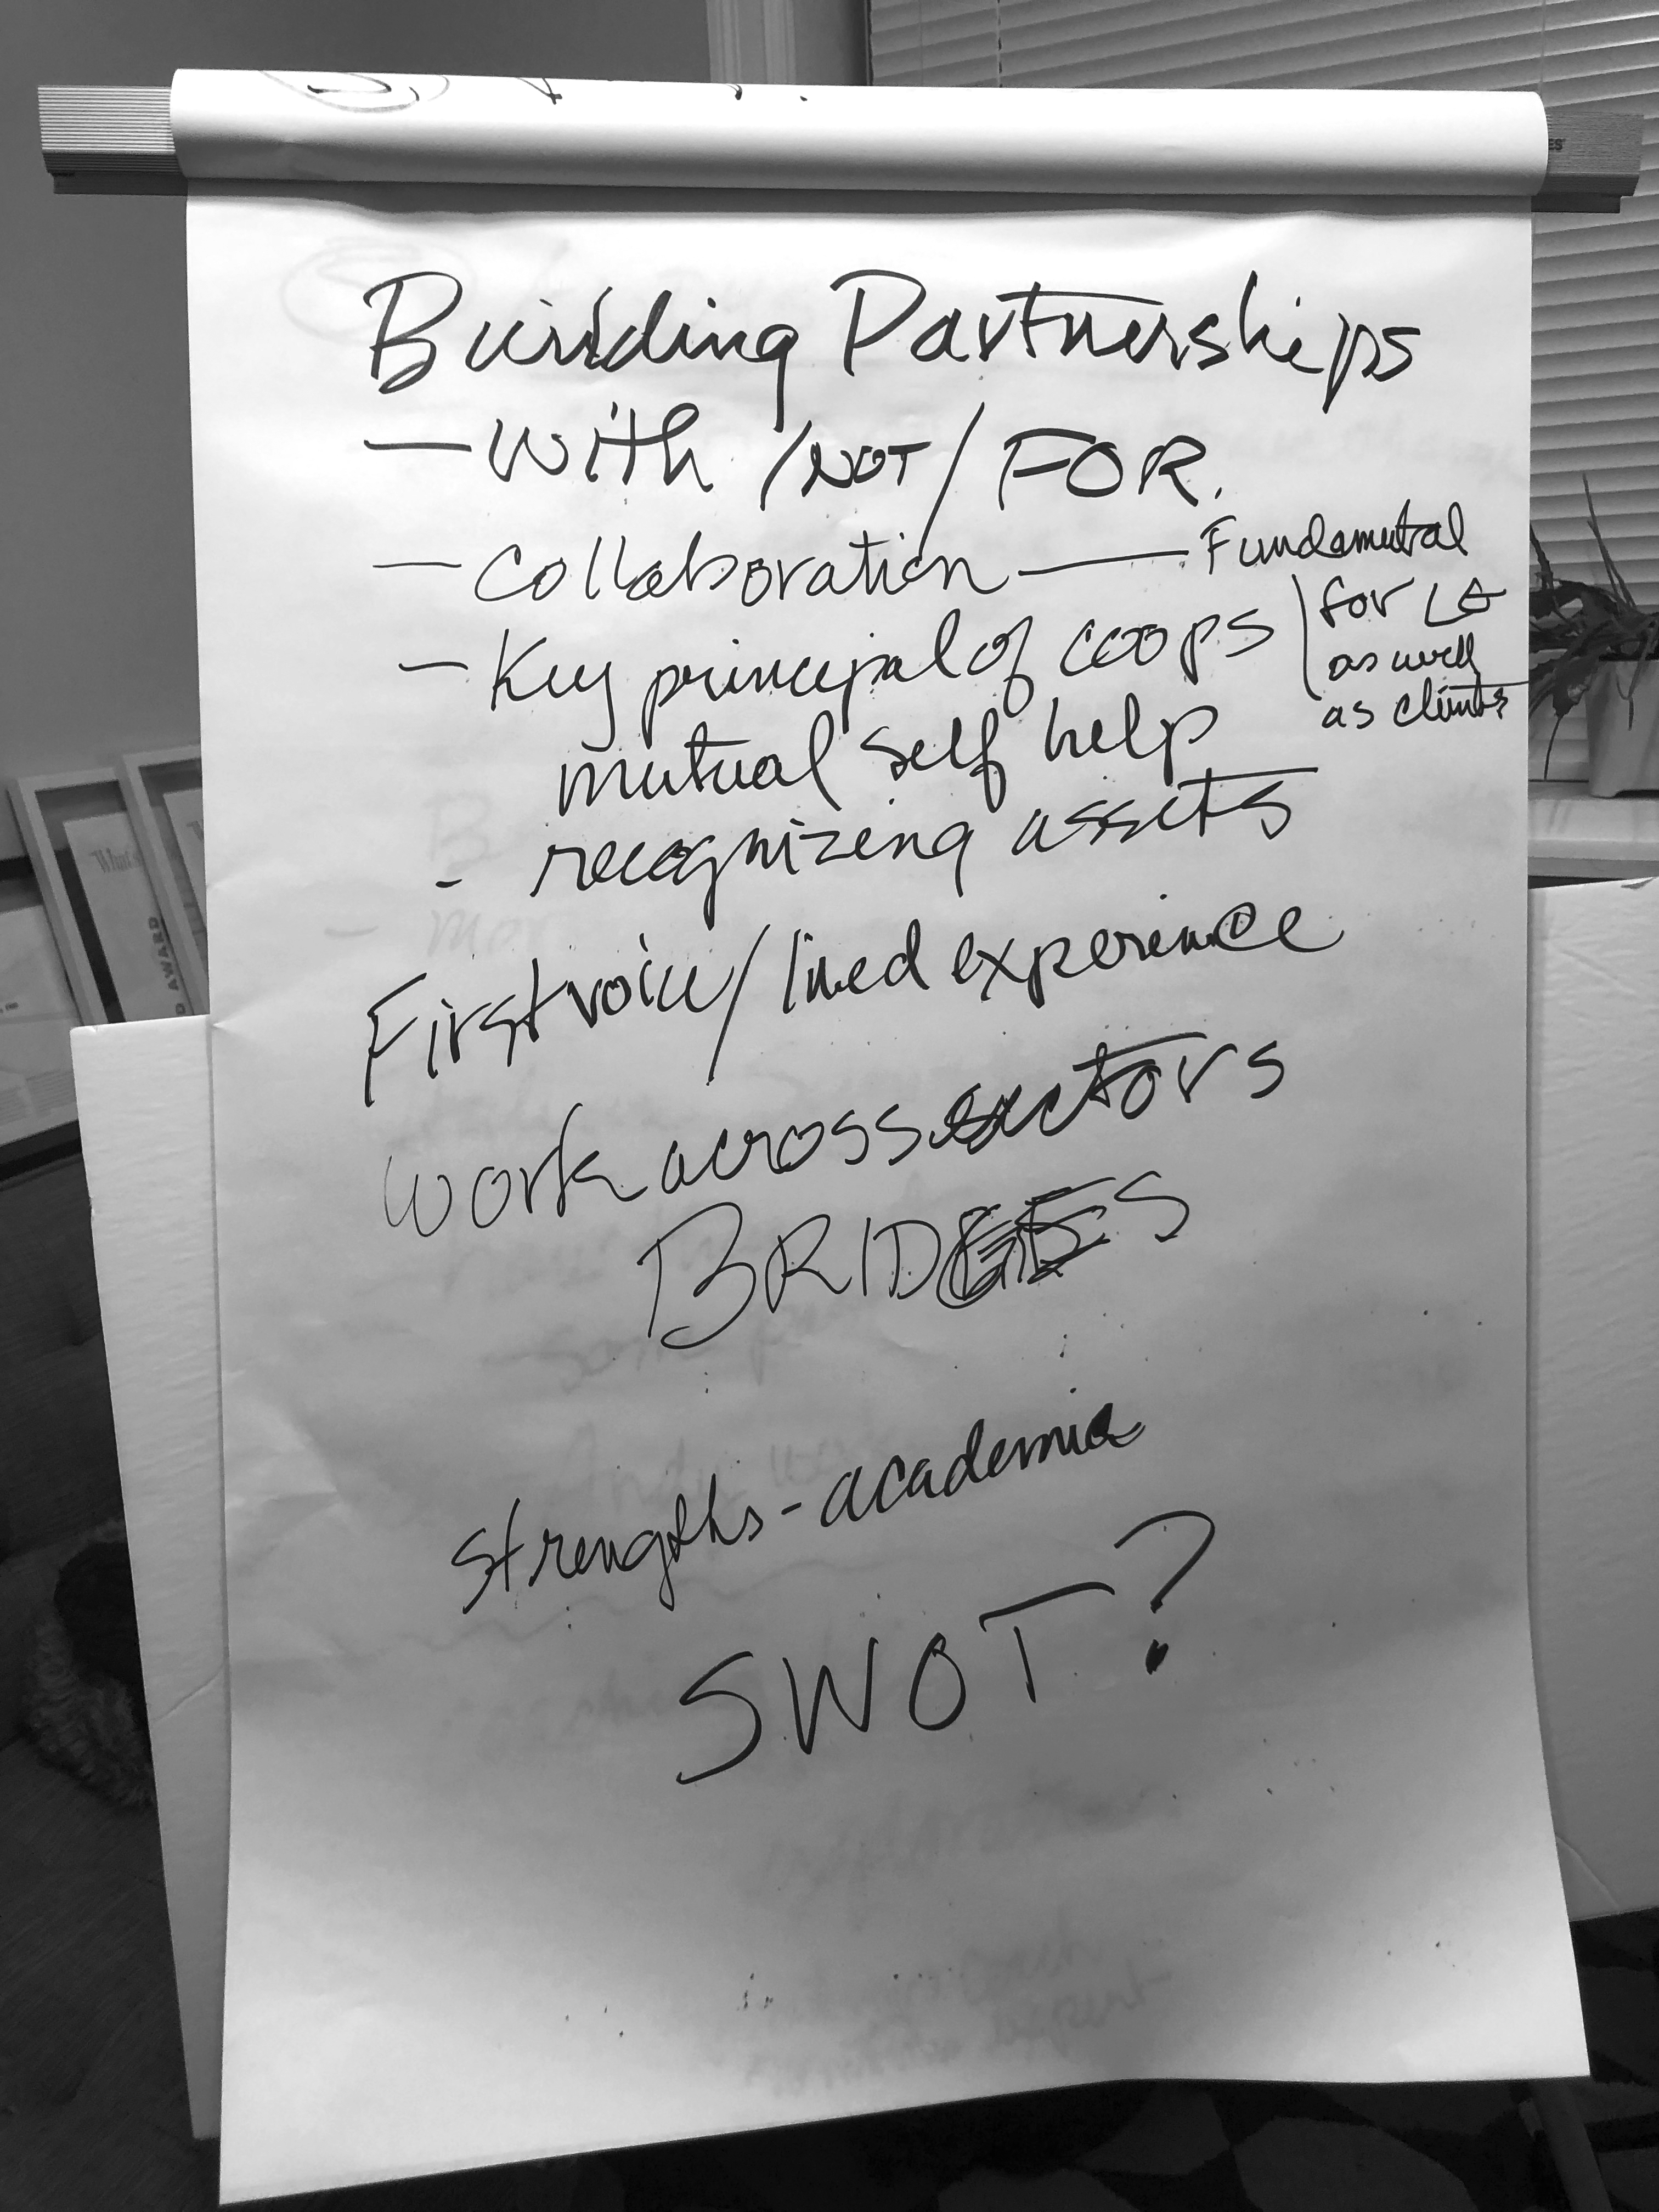 Building Partnerships
— With /NOT/ FOR.
— Collaboration — Fundamental
for LE
as well
as clients
— Key principal of coops
mutual self help
- recognizing assets
First voice/lived experience
work across sectors
BRIDGES
strengths - academia
SWOT?
AWARD